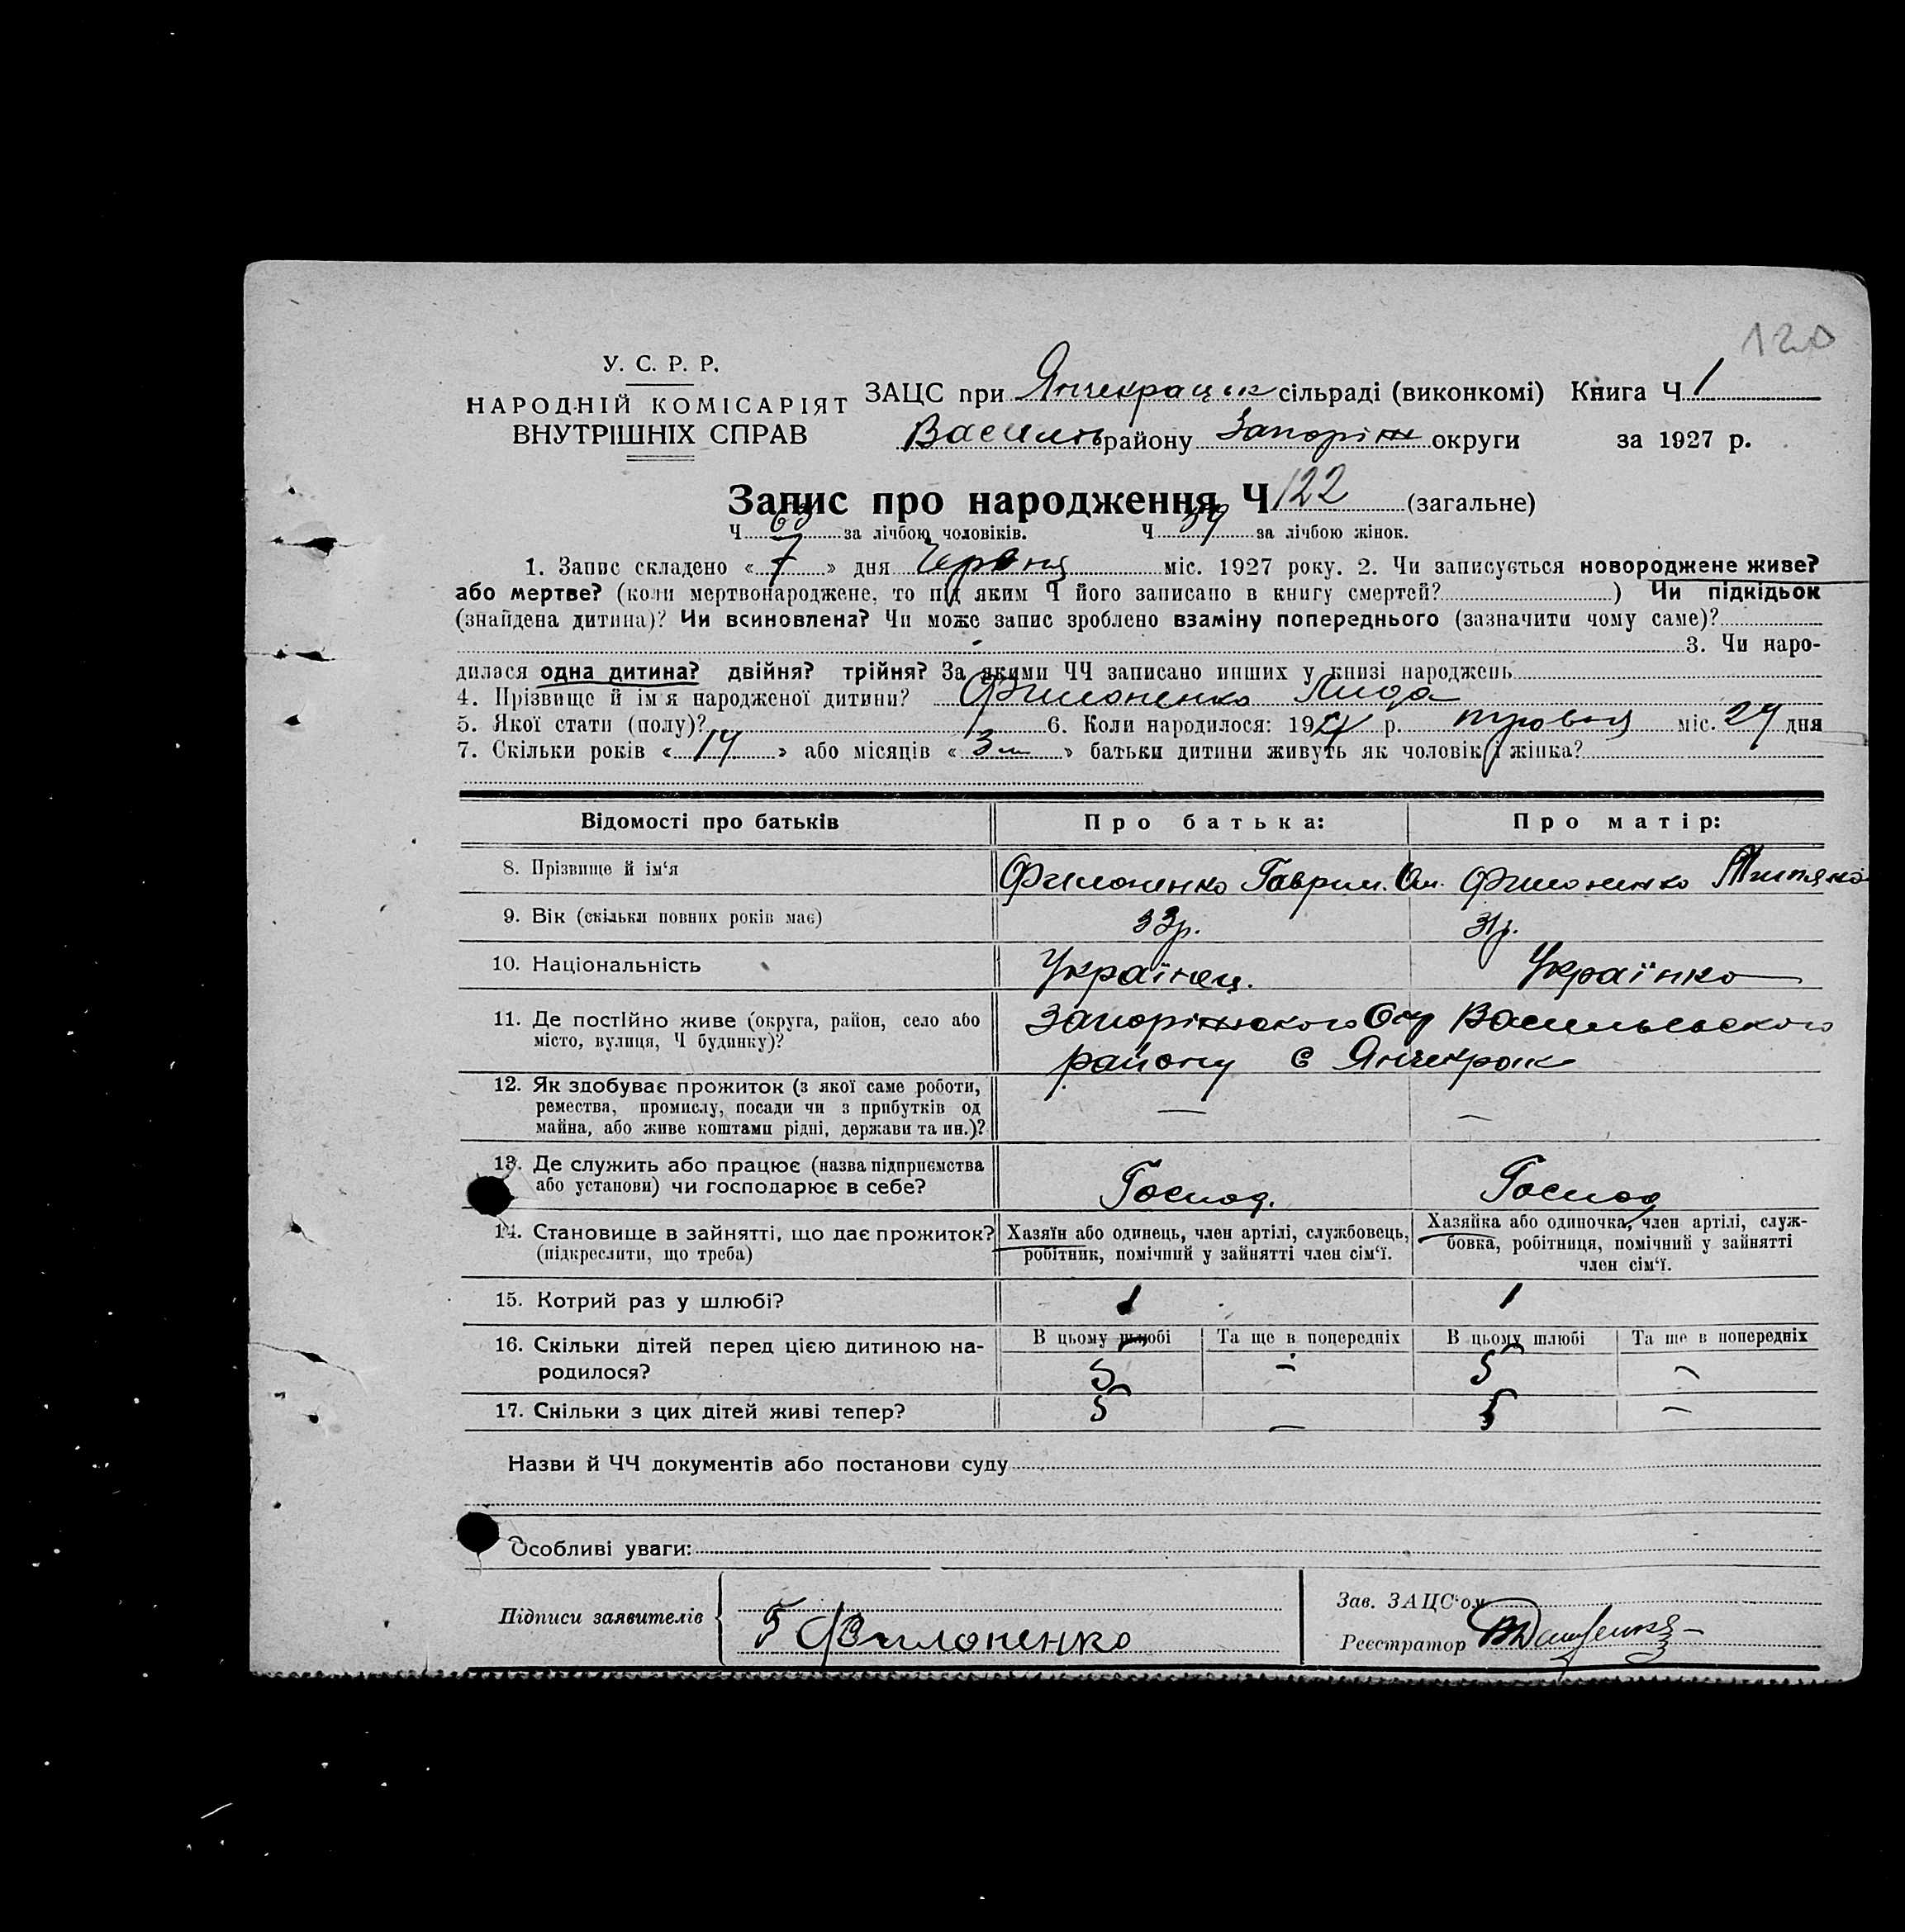 120
У. С. Р. Р.
НАРОДНІЙ КОМІСАРІЯТ
ВНУТРІШНІХ СПРАВ
ЗАЦС при Янчекрацьк сільраді (виконкомі) Книга Ч 1
Василів району Запоріж округи за 1927 р.
Запис про народження Ч 122 (загальне)
Ч 63 за лічбою чоловіків. Ч 59 за лічбою жінок.
1. Запис складено « 7 » дня Червня міс. 1927 року. 2. Чи записується новороджене живе?
або мертве? (коли мертвонароджене, то під яким Ч його записано в книгу смертей? ) Чи підкідьок
(знайдена дитина)? Чи всиновлена? Чи може запис зроблено взаміну попереднього (зазначити чому саме)?
3. Чи наро-
дилася одна дитина? двійня? трійня? За якими ЧЧ записано инших у книзі народжень
4. Прізвище й ім'я народженої дитини? Филоненко Лида
5. Якої стати (полу)? 6. Коли народилося: 19 р. міс. 29 дня
7. Скільки років « 14 » або місяців « 3 м » батьки дитини живуть як чоловік і жінка?
Відомості про батьків Про батька: Про матір:
8. Прізвище й ім'я Филоненко Гаврил. Филоненко
9. Вік (скільки повних років має) 33р. 31р.
10. Національність Українец. Українко
11. Де постійно живе (округа, район, село або Запоріжського Окр Васильевского
місто, вулиця, Ч будинку)? району с Янчекрак
12. Як здобуває прожиток (з якої саме роботи, — —
ремества, промислу, посади чи з прибутків од
майна, або живе коштами рідні, держави та ин.)?
13. Де служить або працює (назва підприємства Господ. Господ
або установи) чи господарює в себе?
14. Становище в зайнятті, що дає прожиток? Хазяїн або одинець, член артілі, службовець, Хазяйка або одиночка, член артілі, служ-
(підкреслити, що треба) робітник, помічний у зайнятті член сім'ї. бовка, робітниця, помічний у зайнятті
член сім'ї.
15. Котрий раз у шлюбі? 1 1
16. Скільки дітей перед цією дитиною на- В цьому шлюбі Та ще в попередніх В цьому шлюбі Та ще в попередніх
родилося? 5 – 5 –
17. Скільки з цих дітей живі тепер? 5 — 5 –
Назви й ЧЧ документів або постанови суду
Особливі уваги:
Підписи заявителів Г Филоненко
Зав. ЗАЦС'ом
Реєстратор